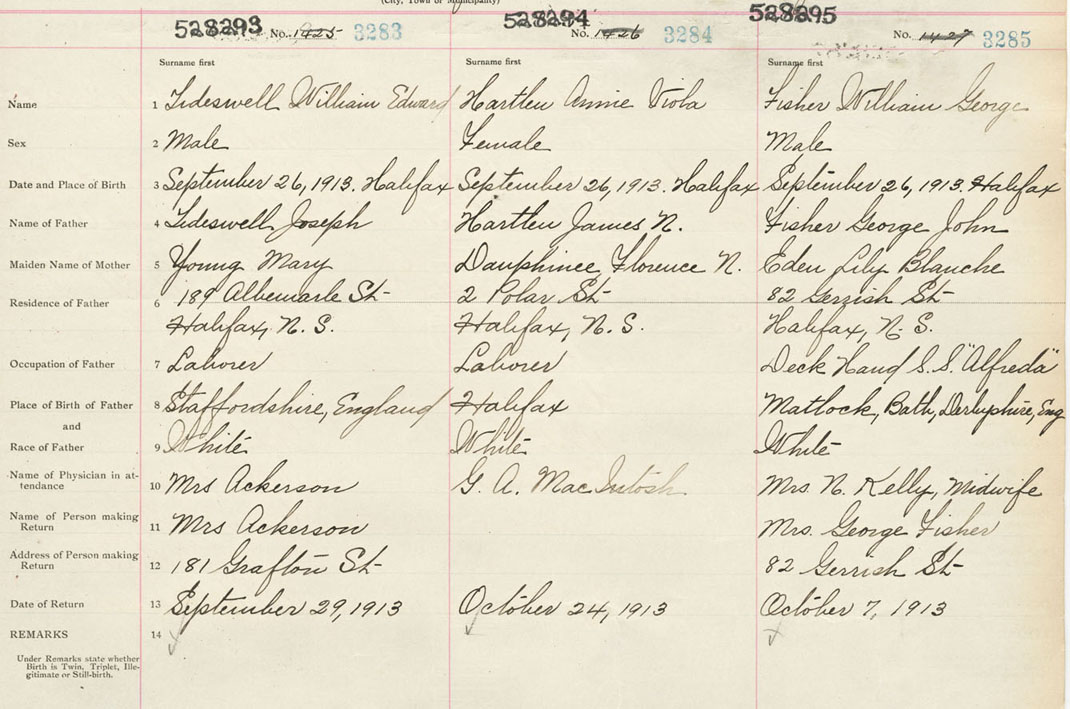 (City, Town or Municipality)
528293 No. 1425 3283
528294 No. 1426 3284
528295 No. 1427 3285
Surname first Surname first Surname first
Name 1 Tideswell William Edward Hartlen Annie Viola Fisher William George
Sex 2 Male Female Male
Date and Place of Birth 3 September 26, 1913. Halifax September 26, 1913. Halifax September 26, 1913. Halifax
Name of Father 4 Tideswell, Joseph Hartlen James N. Fisher George John
Maiden Name of Mother 5 Young Mary Dauphinee, Florence N. Eden Lily Blanche
Residence of Father 6 189 Albemarle St 2 Polar St 82 Gerrish St
Halifax, N. S. Halifax, N. S. Halifax, N. S.
Occupation of Father 7 Laborer Laborer Deck Hand S.S. "Alfreda"
Place of Birth of Father 8 Staffordshire, England Halifax Matlock, Bath, Derbyshire, Eng
and
Race of Father 9 White White White
Name of Physician in at-
tendance 10 Mrs Ackerson G. A. MacIntosh Mrs. N. Kelly, Midwife
Name of Person making
Return 11 Mrs Ackerson Mrs. George Fisher
Address of Person making
Return 12 181 Grafton St 82 Gerrish St
Date of Return 13 September 29, 1913 October 24, 1913 October 7, 1913
REMARKS 14
Under Remarks state whether
Birth is Twin, Triplet, Ille-
gitimate or Still-birth.